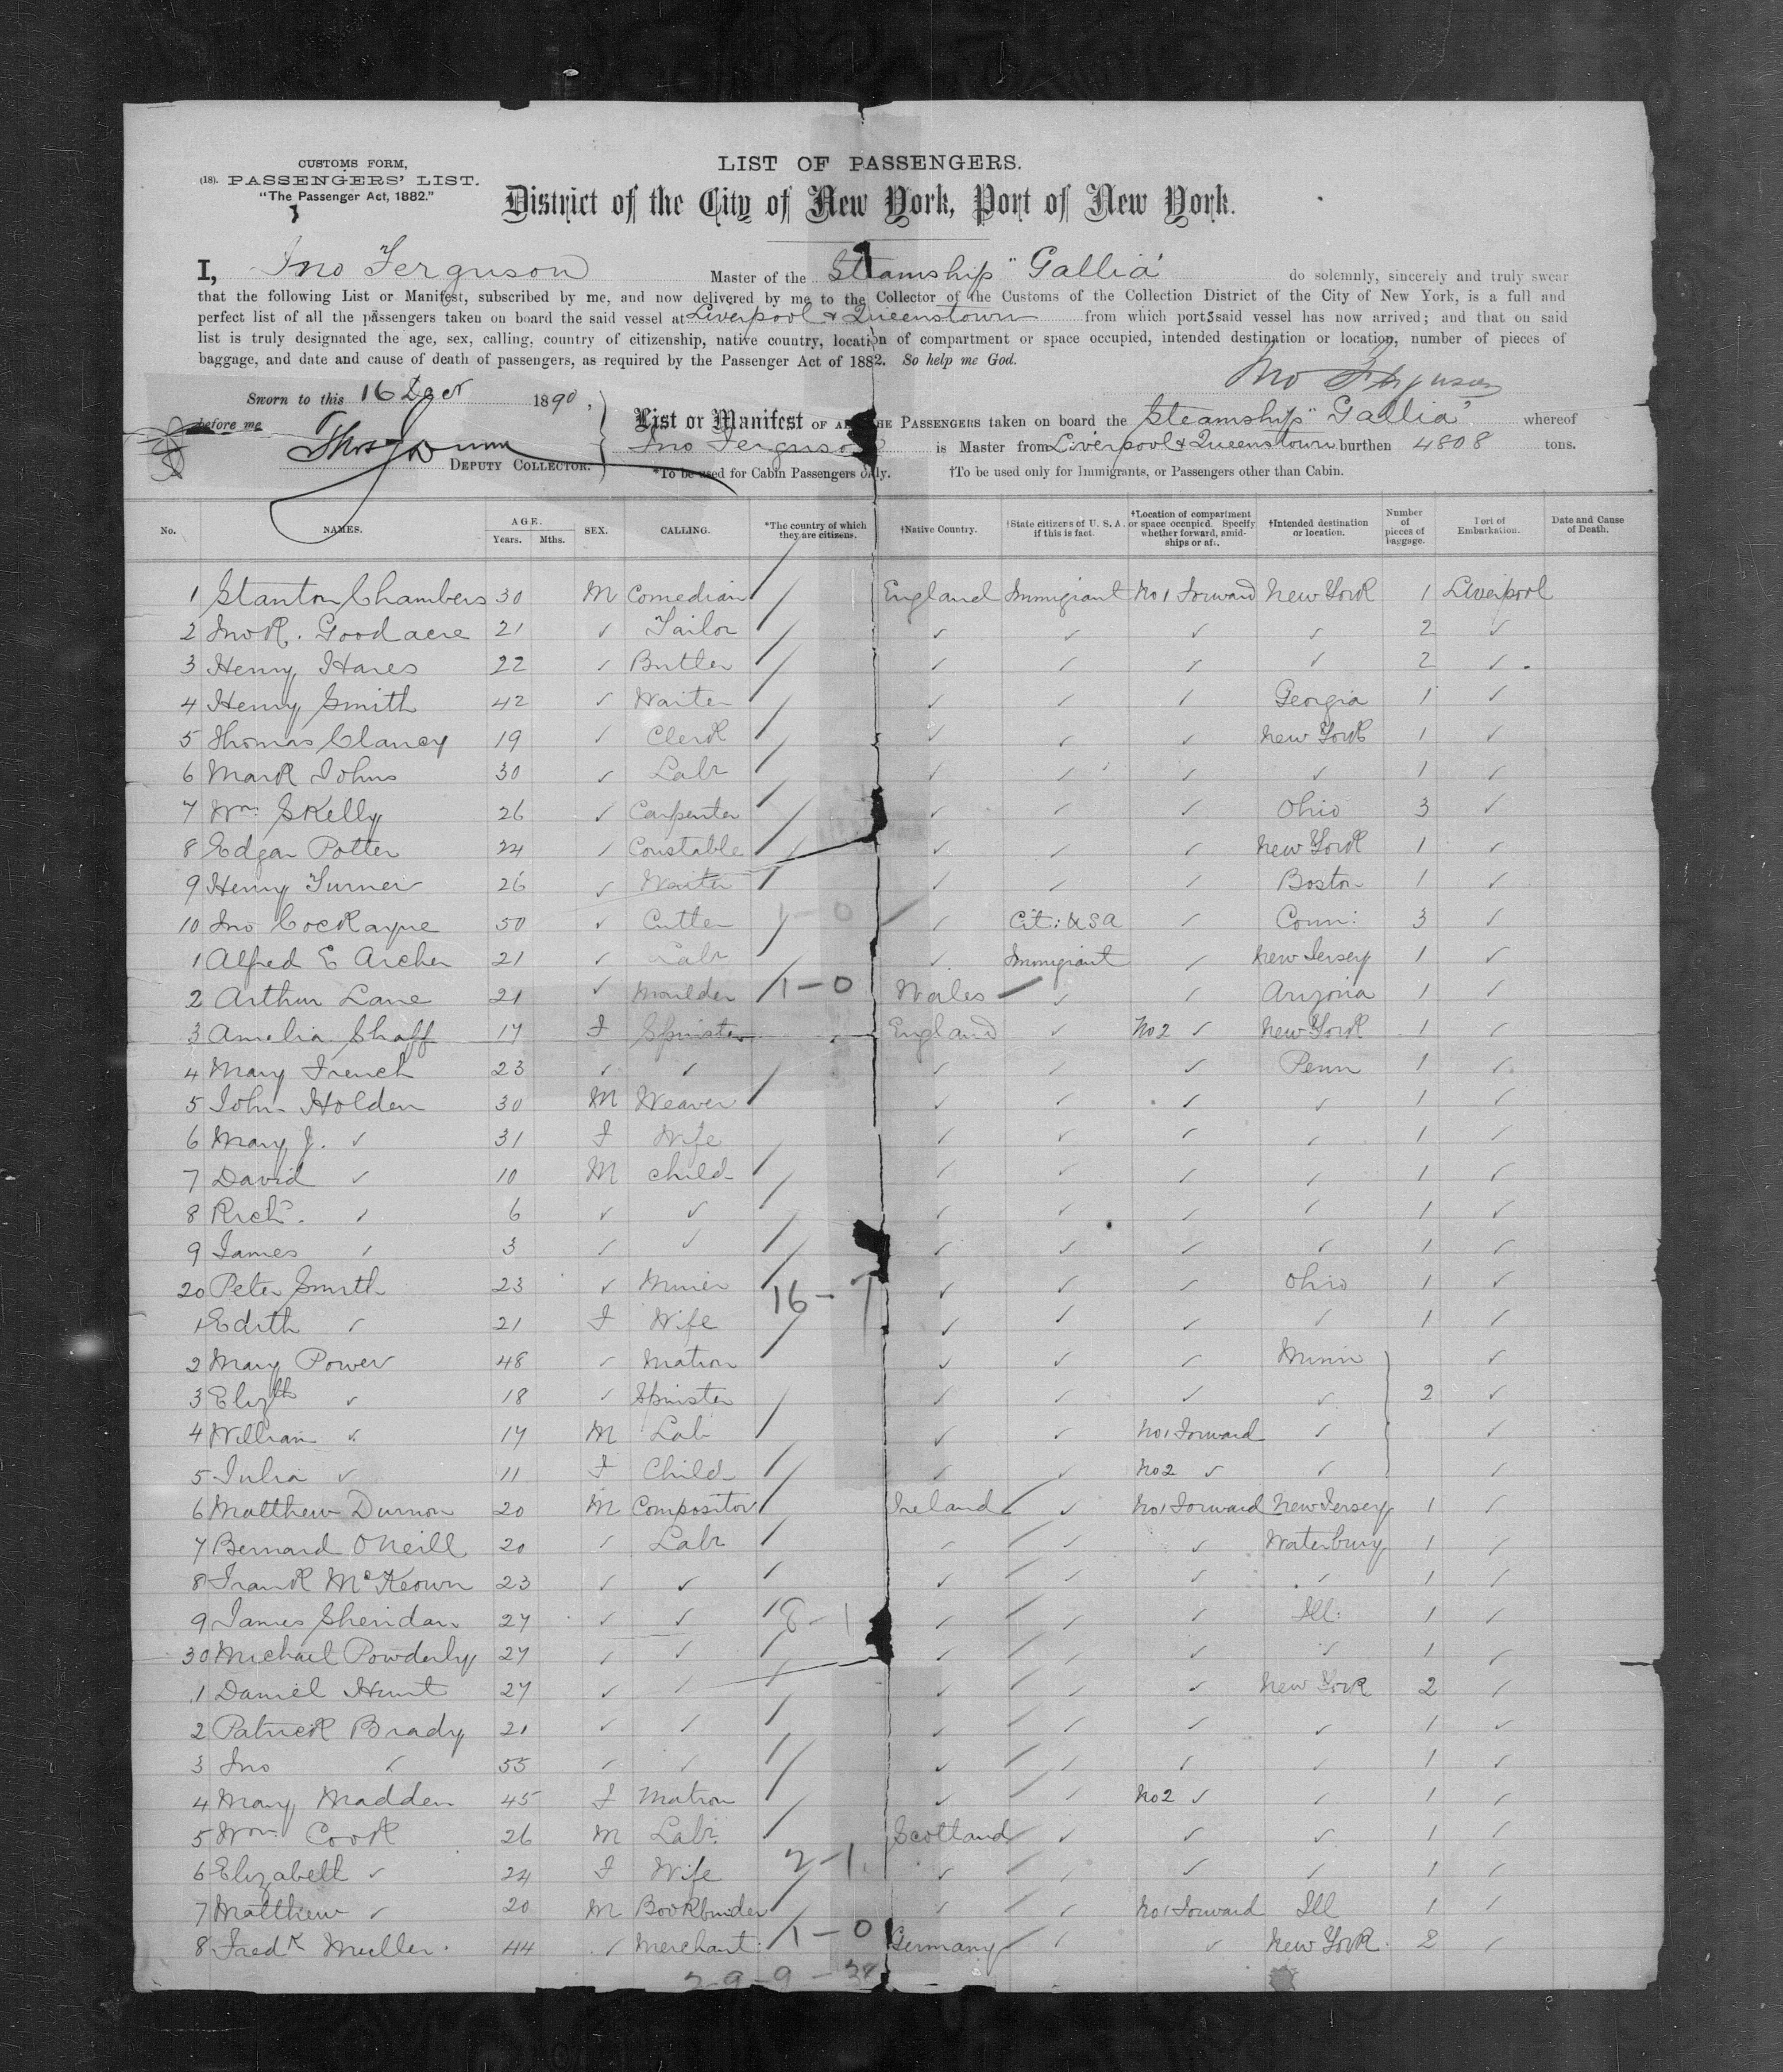 CUSTOMS FORM,
(18). PASSENGERS' LIST.
"The Passenger Act, 1882."
LIST OF PASSENGERS.
District of the City of New York, Port of New York.
I, Jno Ferguson Master of the Steamship "Gallia" do solemnly, sincerely and truly swear
that the following List or Manifest, subscribed by me, and now delivered by me to the Collector of the Customs of the Collection District of the City of New York, is a full and
perfect list of all the passengers taken on board the said vessel at Liverpool & Queenstown from which ports said vessel has now arrived; and that on said
list is truly designated the age, sex, calling, country of citizenship, native country, location of compartment or space occupied, intended destination or location, number of pieces of
baggage, and date and cause of death of passengers, as required by the Passenger Act of 1882. So help me God.
Jno Ferguson
Sworn to this 16 Decr 1890,
before me
DEPUTY COLLECTOR.
List or Manifest OF ALL THE PASSENGERS taken on board the Steamship "Gallia" whereof
Jno Ferguson is Master from Liverpool & Queenstown burthen 4808 tons.
*To be used for Cabin Passengers only. †To be used only for Immigrants, or Passengers other than Cabin.
No. NAMES. AGE. Years. Mths. SEX. CALLING. *The country of which they are citizens. †Native Country. †State citizens of U. S. A. if this is fact. †Location of compartment or space occupied. Specify whether forward, amidships or aft. †Intended destination or location. Number of pieces of baggage. Port of Embarkation. Date and Cause of Death.
1 Stanton Chambers 30 M Comedian / England Immigrant No 1 Forward New York 1 Liverpool
2 Jno R. Goodacre 21 ✓ Tailor / ✓ ✓ ✓ ✓ 2 ✓
3 Henry Hares 22 ✓ Butler / ✓ ✓ ✓ ✓ 2 ✓
4 Henry Smith 42 ✓ Waiter / ✓ ✓ ✓ Georgia 1 ✓
5 Thomas Clancy 19 ✓ Clerk / ✓ ✓ ✓ New York 1 ✓
6 Mark Johns 30 ✓ Labr / ✓ ✓ ✓ ✓ 1 ✓
7 Wm: Skelly 26 ✓ Carpenter / ✓ ✓ ✓ Ohio 3 ✓
8 Edgar Potter 24 ✓ Constable / ✓ ✓ ✓ New York 1 ✓
9 Henry Turner 26 ✓ Waiter / ✓ ✓ ✓ Boston 1 ✓
10 Jno Cockayne 50 ✓ Cutler 1-0 ✓ Cit: USA ✓ Conn: 3 ✓
1 Alfred E Archer 21 ✓ Labr / ✓ Immigrant ✓ New Jersey 1 ✓
2 Arthur Lane 21 ✓ Moulder / 1-0 Wales ✓ ✓ Arizona 1 ✓
3 Amelia Shaff 17 F Spinster England ✓ No 2 ✓ New York 1 ✓
4 Mary French 23 ✓ ✓ ✓ ✓ ✓ Penn 1 ✓
5 John Holden 30 M Weaver / ✓ ✓ ✓ ✓ 1 ✓
6 Mary J. ✓ 31 F Wife ✓ ✓ ✓ ✓ 1 ✓
7 David ✓ 10 M Child / ✓ ✓ ✓ ✓ 1 ✓
8 Richd. ✓ 6 ✓ ✓ / ✓ ✓ ✓ ✓ 1 ✓
9 James ✓ 3 ✓ ✓ / ✓ ✓ ✓ ✓ 1 ✓
20 Peter Smith 23 ✓ Miner / 16-7 ✓ ✓ ✓ Ohio 1 ✓
1 Edith ✓ 21 F Wife ✓ ✓ ✓ ✓ 1 ✓
2 Mary Power 48 ✓ Matron / ✓ ✓ ✓ Minn ✓
3 Elizth ✓ 18 ✓ Spinster / ✓ ✓ ✓ ✓ 2 ✓
4 William ✓ 17 M Lab / ✓ ✓ No 1 Forward ✓ ✓
5 Julia ✓ 11 F Child / ✓ ✓ No 2 ✓ ✓ ✓
6 Matthew Durnon 20 M Compositor / Ireland ✓ No 1 Forward New Jersey 1 ✓
7 Bernard O'Neill 20 ✓ Labr / ✓ ✓ ✓ Waterbury 1 ✓
8 Frank McKeown 23 ✓ ✓ / ✓ ✓ ✓ ✓ 1 ✓
9 James Sheridan 27 ✓ ✓ / 8-1 ✓ ✓ ✓ Ill: 1 ✓
30 Michael Powderly 27 ✓ ✓ / ✓ ✓ ✓ ✓ 1 ✓
1 Daniel Hunt 27 ✓ ✓ / ✓ ✓ ✓ New York 2 ✓
2 Patrick Brady 21 ✓ ✓ / ✓ ✓ ✓ ✓ 1 ✓
3 Jno ✓ 55 ✓ ✓ / ✓ ✓ ✓ ✓ 1 ✓
4 Mary Madden 45 F Matron / ✓ ✓ No 2 ✓ ✓ 1 ✓
5 Wm. Cook 26 M Labr. / Scotland ✓ ✓ ✓ 1 ✓
6 Elizabeth ✓ 24 F Wife 2-1 ✓ ✓ ✓ ✓ 1 ✓
7 Matthew ✓ 20 M Bookbinder / ✓ ✓ No 1 Forward Ill 1 ✓
8 Fredk Muller. 44 ✓ Merchant / 1-0 Germany ✓ ✓ New York 2 ✓
29-9-38